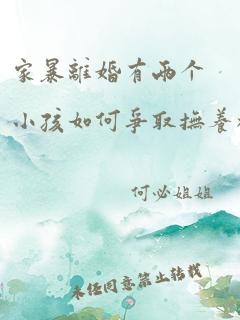 家暴離婚有兩个
小孩如何爭取撫養
何必姐姐
未经同意禁止转载